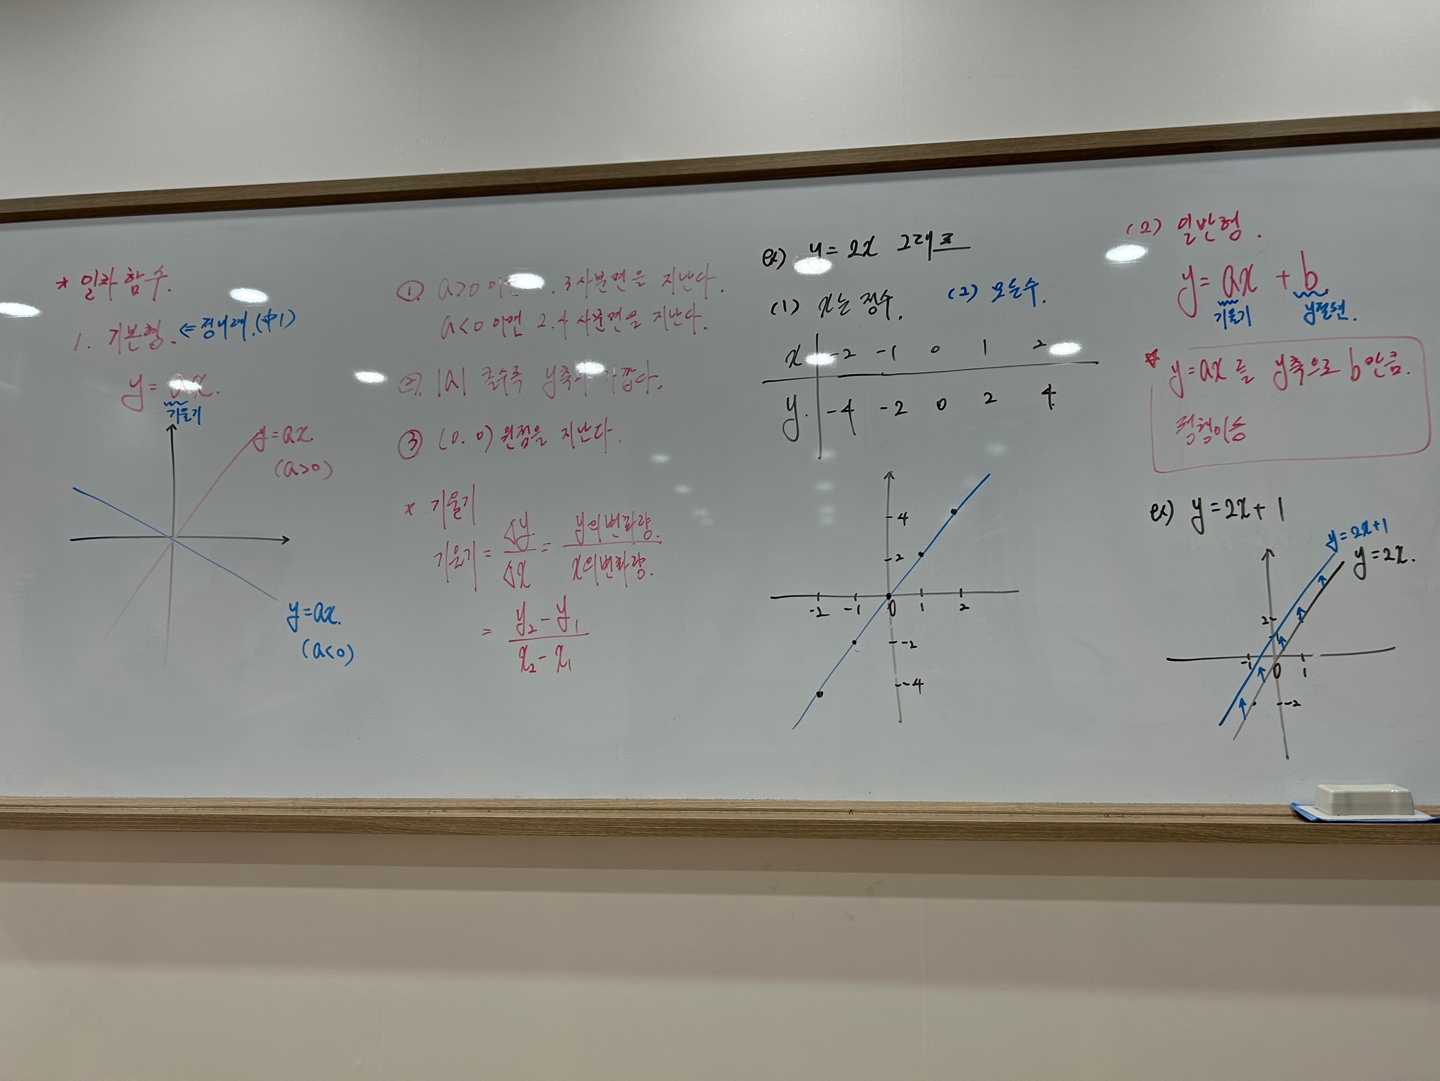 * 일차 함수.
1. 기본형. ⇐ 정비례.(中1)
y = ax.
기울기
y=ax.
(a>0)
y=ax.
(a<0)
① a>0 이 . 3 사분면을 지난다.
a<0 이면 2.4 사분면을 지난다.
|a| 클수록 y축 가깝다.
③ (0.0) 원점을 지난다.
* 기울기
기울기 = △y/△x = y의 변화량./x의 변화량.
= y₂-y₁/x₂-x₁
ex) y=2x 그래프
(1) x는 정수. (2) 모든수.
x -2 -1 0 1 2
y. -4 -2 0 2 4
4
2
-2 -1 0 1 2
-2
-4
(2) 일반형.
y=ax+b
기울기 y절편.
* y=ax 를 y축으로 b만큼.
평행이동
ex) y=2x+1
y=2x+1
y=2x.
2
1
-1 0 1
-2